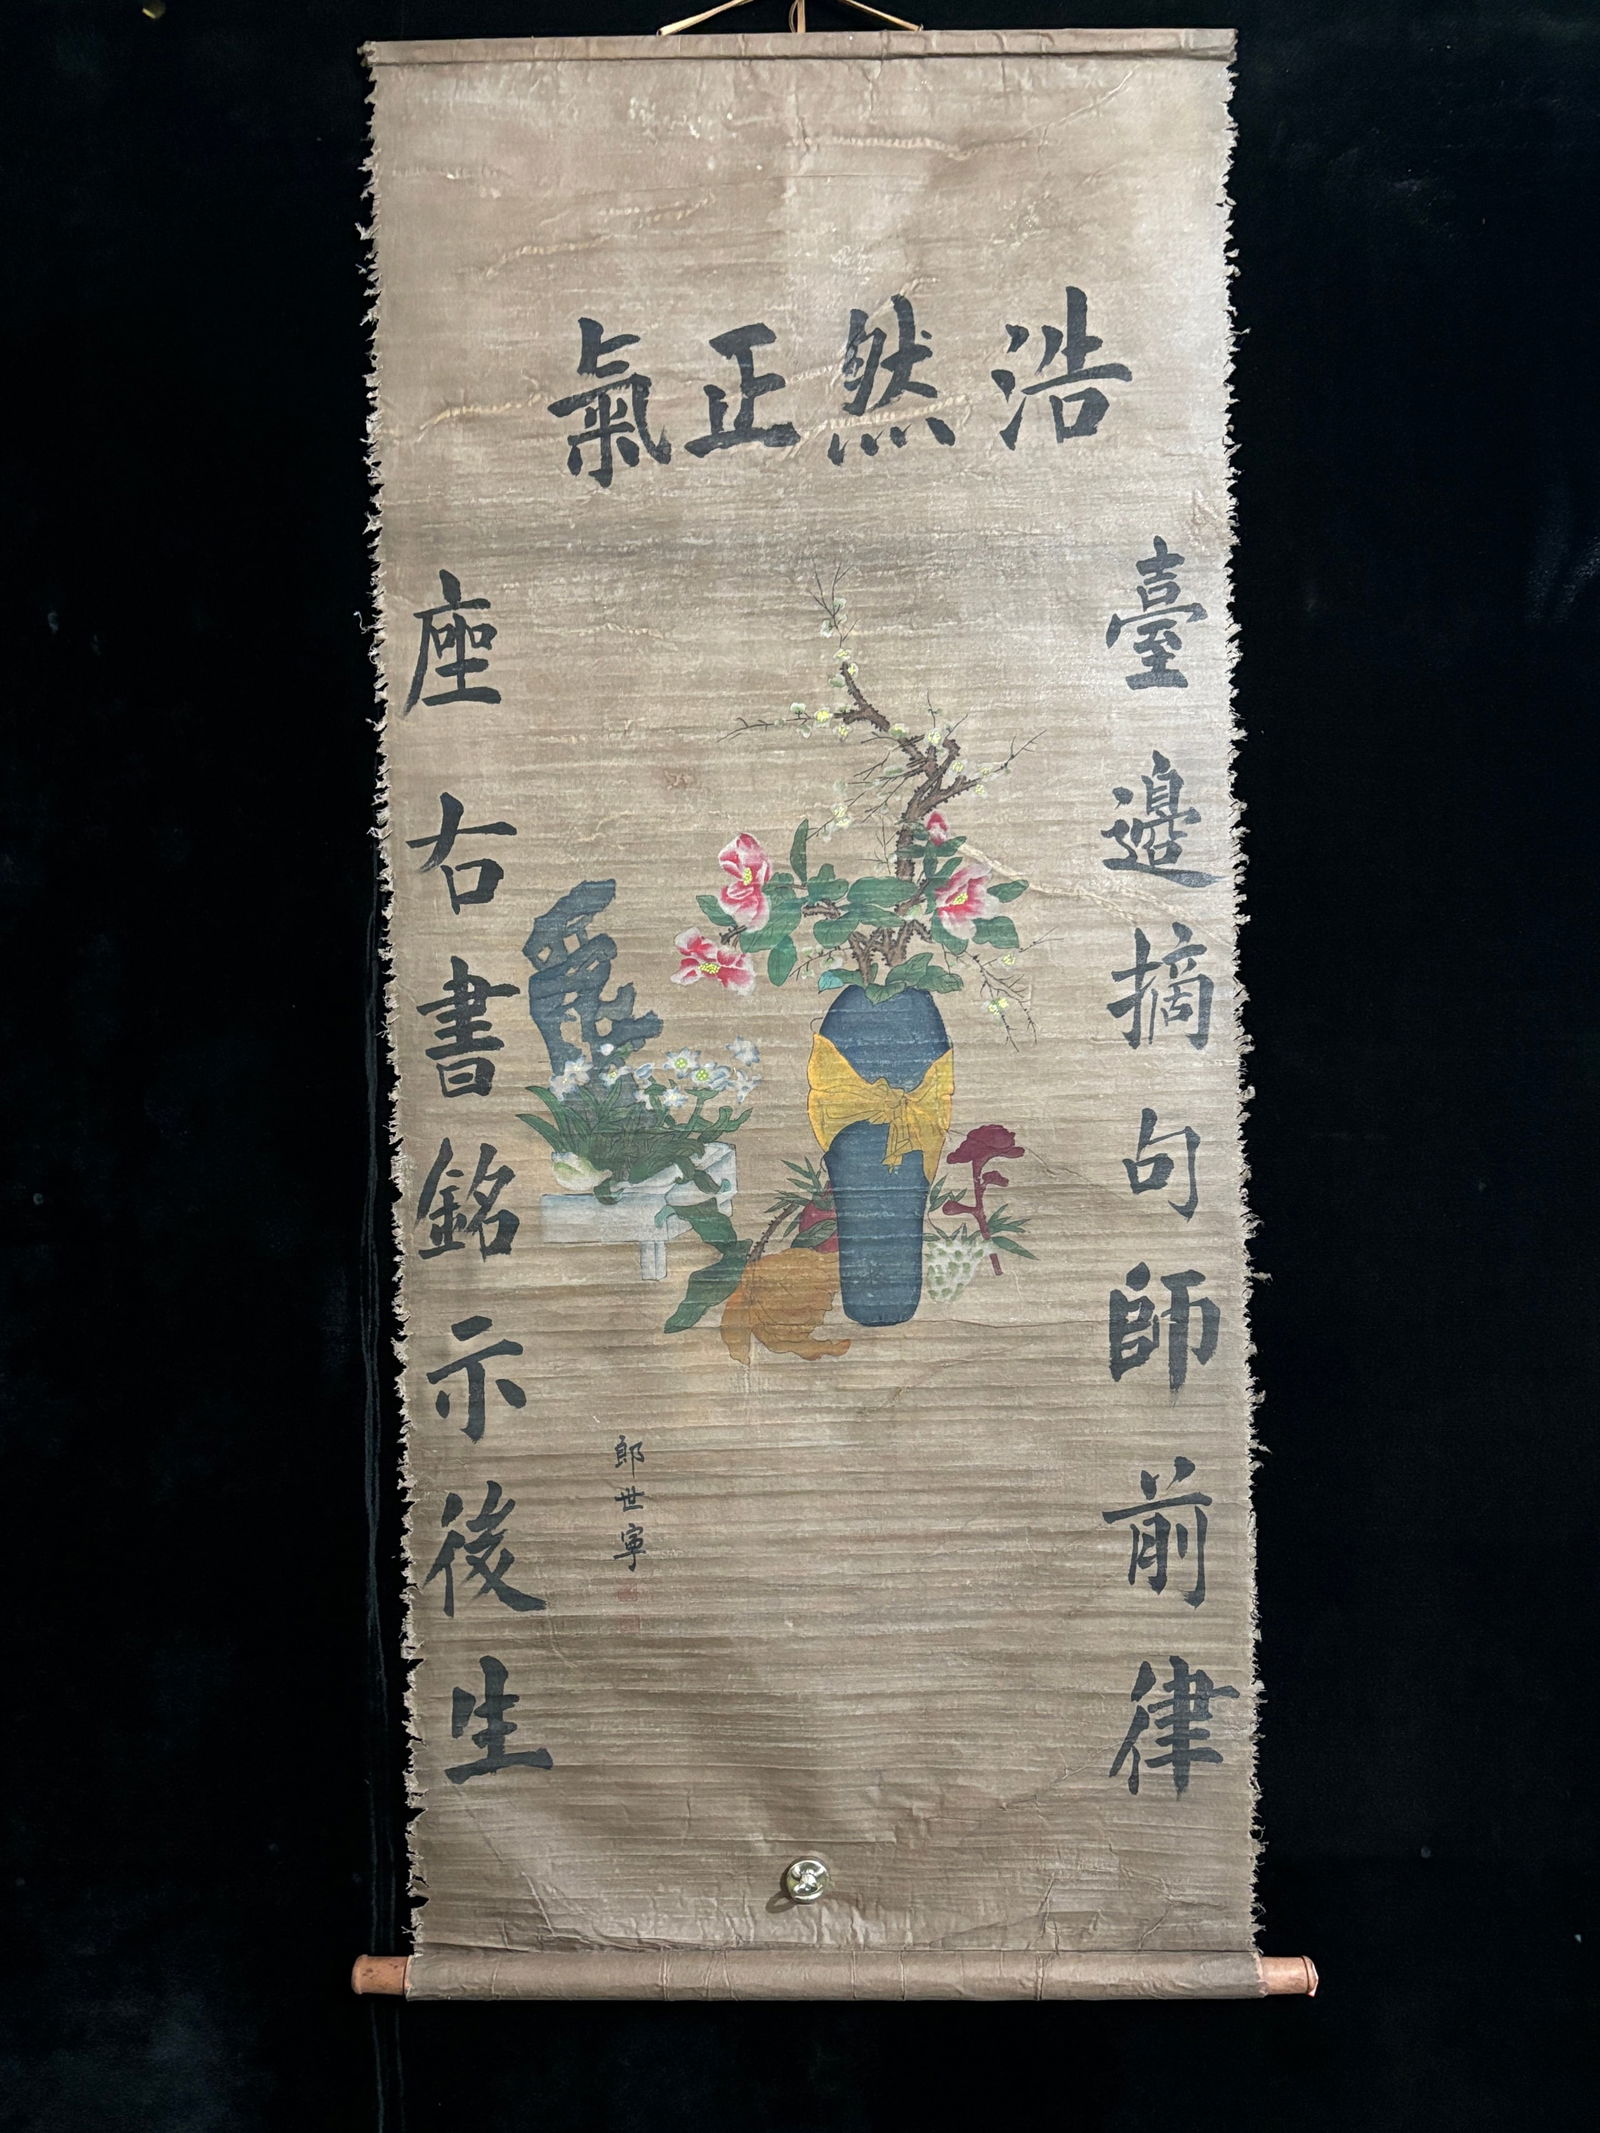 浩然正氣
臺邊摘句師前律
座右書銘示後生
郎世寧